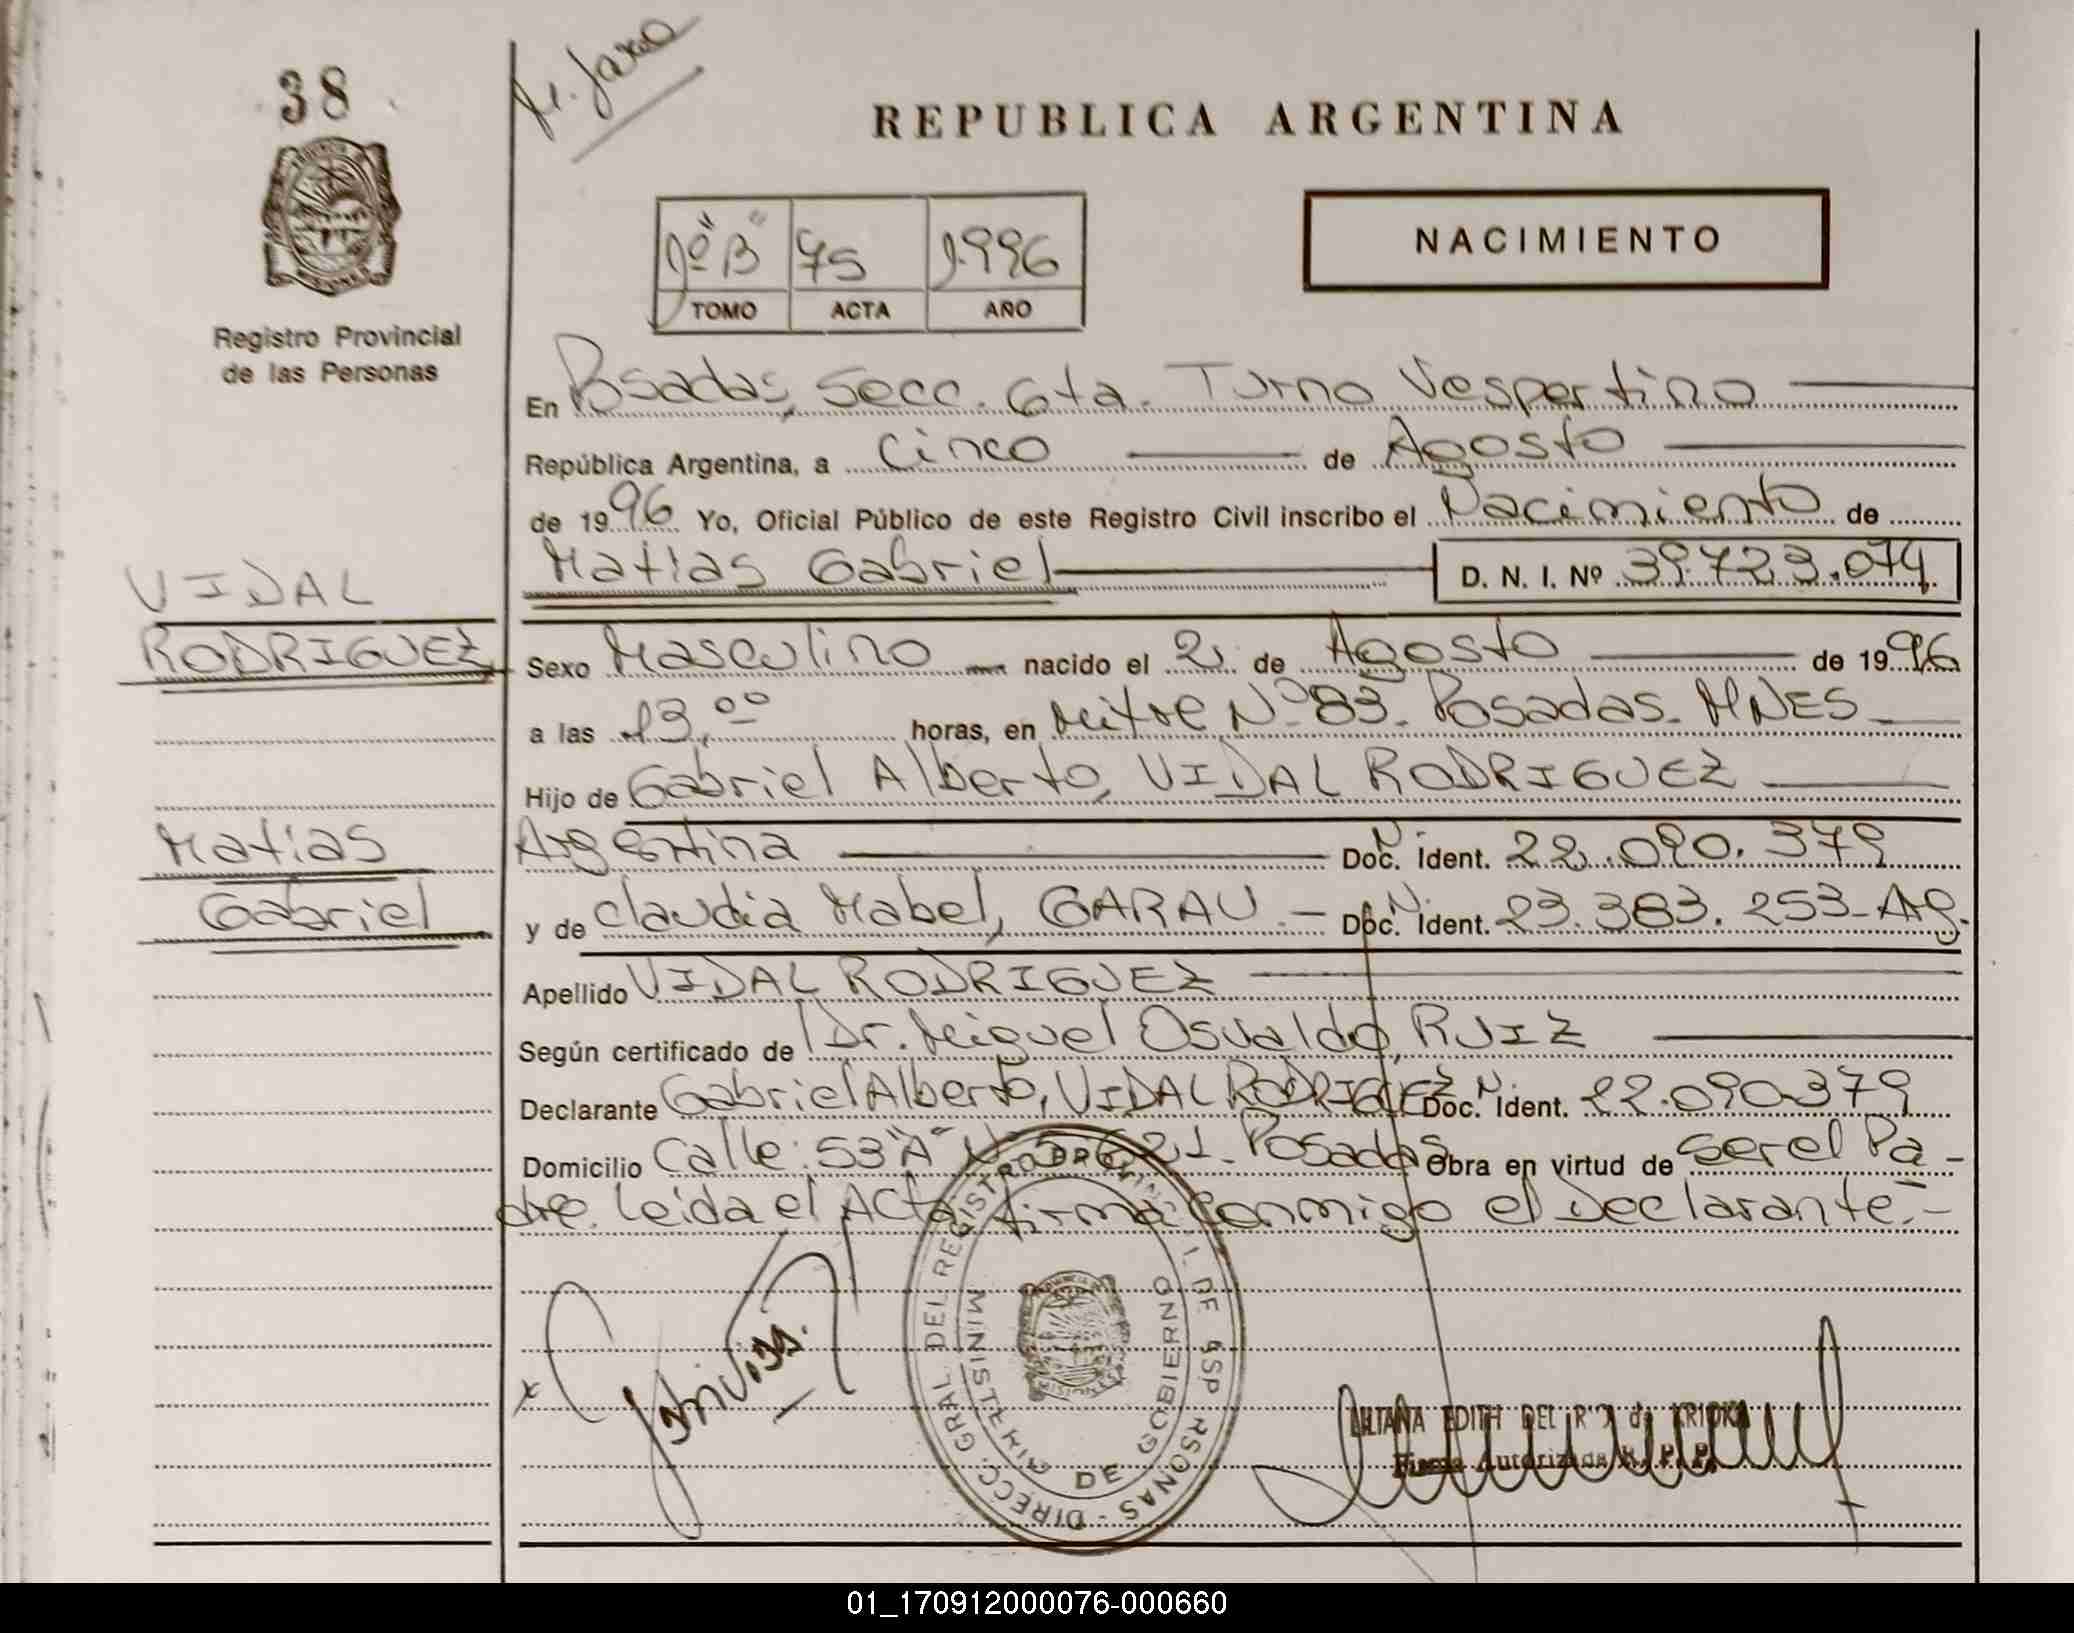 38
M. Jaxo
REPUBLICA ARGENTINA
NACIMIENTO
1º "B" 75 1.996
TOMO ACTA AÑO
Registro Provincial
de las Personas
En Posadas, Secc. 6ta. Turno Vespertino
República Argentina, a cinco de Agosto
de 1996 Yo, Oficial Público de este Registro Civil inscribo el Nacimiento de
Matias Gabriel D. N. I. Nº 39.723.074
VIDAL
RODRIGUEZ
Sexo Masculino nacido el 2 de Agosto de 1996
a las 13,00 horas, en Mitre Nº 83. Posadas. MNES
Hijo de Gabriel Alberto, VIDAL RODRIGUEZ
Matias
Gabriel
Argentina Doc. N. Ident. 22.090.379
y de Claudia Mabel, GARAU. - Doc. N. Ident. 23.383.253-Arg.
Apellido VIDAL RODRIGUEZ
Según certificado de Dr. Miguel Osvaldo, RUIZ
Declarante Gabriel Alberto, VIDAL RODRIGUEZ Doc. N. Ident. 22.090.379
Domicilio Calle: 53 "A" Nº 5.621. Posadas Obra en virtud de ser el Pa-
dre. Leida el Acta, firma conmigo el Declarante.-
DIRECC. GRAL DEL REGISTRO PROVINCIAL DE LAS PERSONAS
MINISTERIO DE GOBIERNO
MISIONES
LILIANA EDITH DEL R
Firma Autorizada R. P. P.
01_170912000076-000660